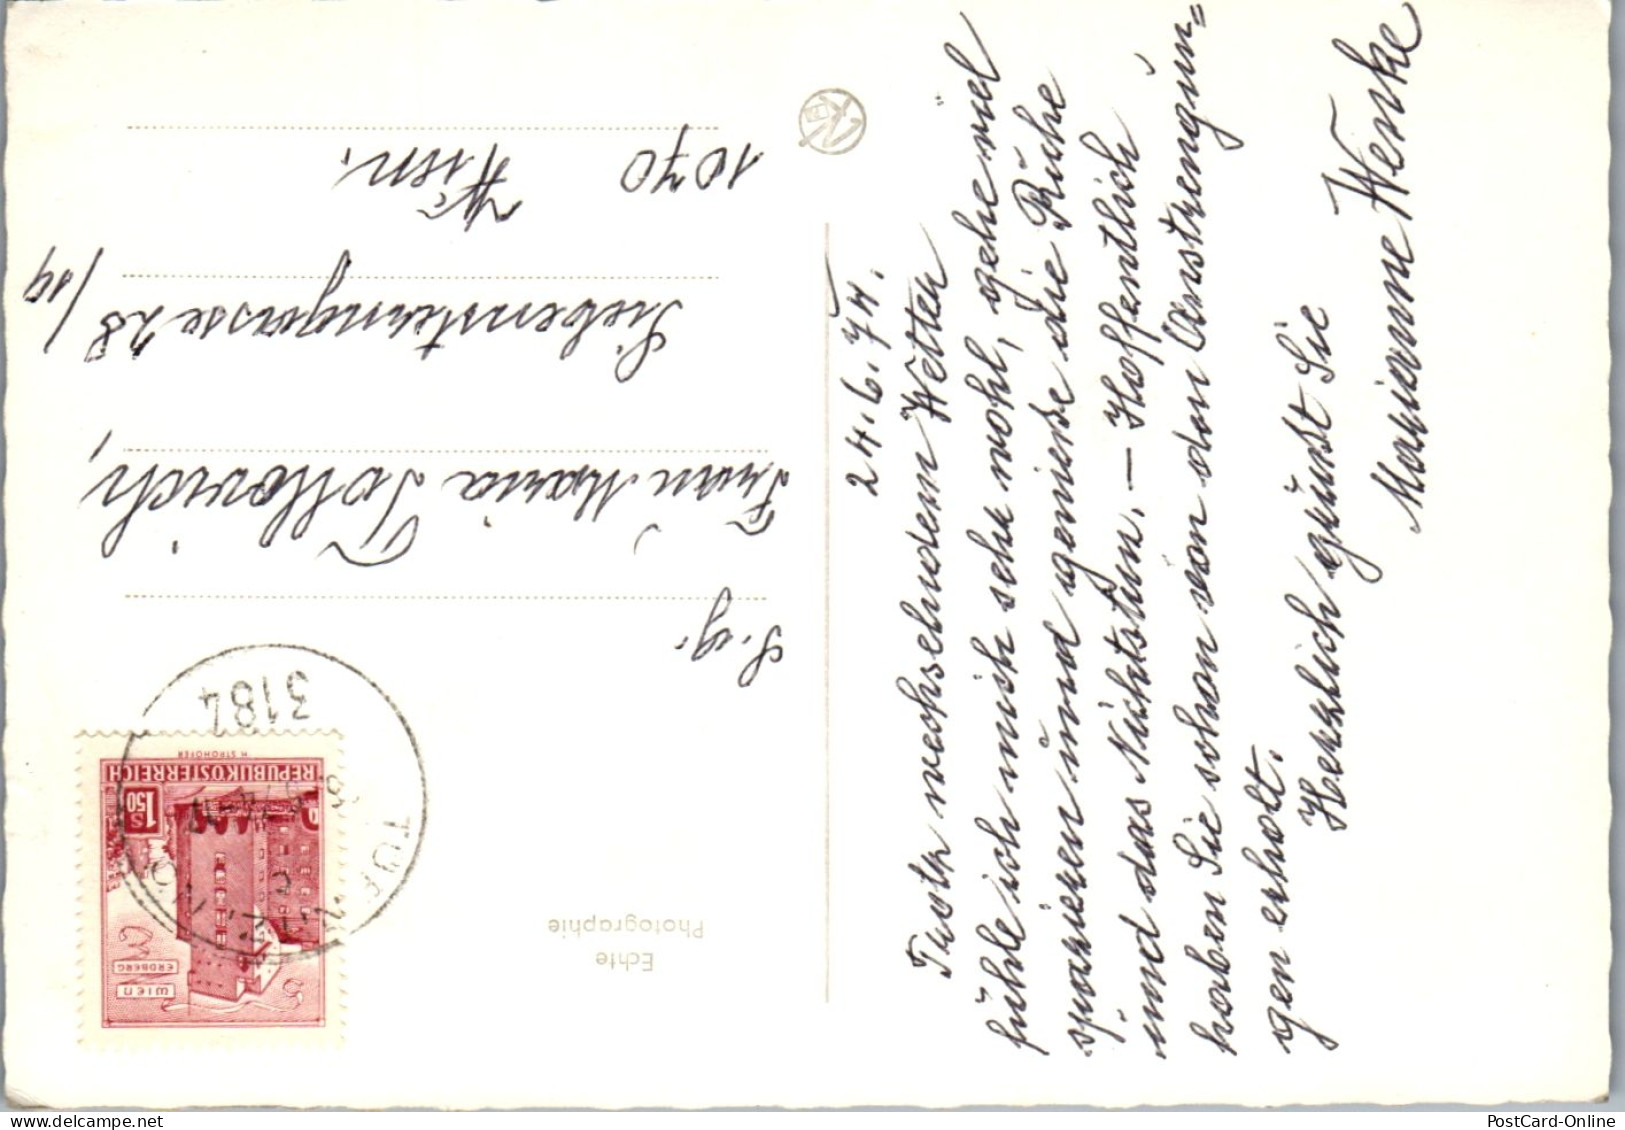 24.6.74.
Trotz wechselndem Wetter
fühle ich mich sehr wohl, gehe viel
spazieren und genieße die Ruhe
und das Nichtstun. – Hoffentlich
haben Sie schon von den Anstrengun=
gen erholt.
Herzlich grüßt Sie
Marianne Wenke
S.g.
Frau Maria
Siebensterngasse 28/19
1070 Wien.
Echte
Photographie
3184
TÜRNITZ, NÖ
REPUBLIK ÖSTERREICH
H. STROHOFER
S 1.50
WIEN
ERDBERG
PostCard-Online